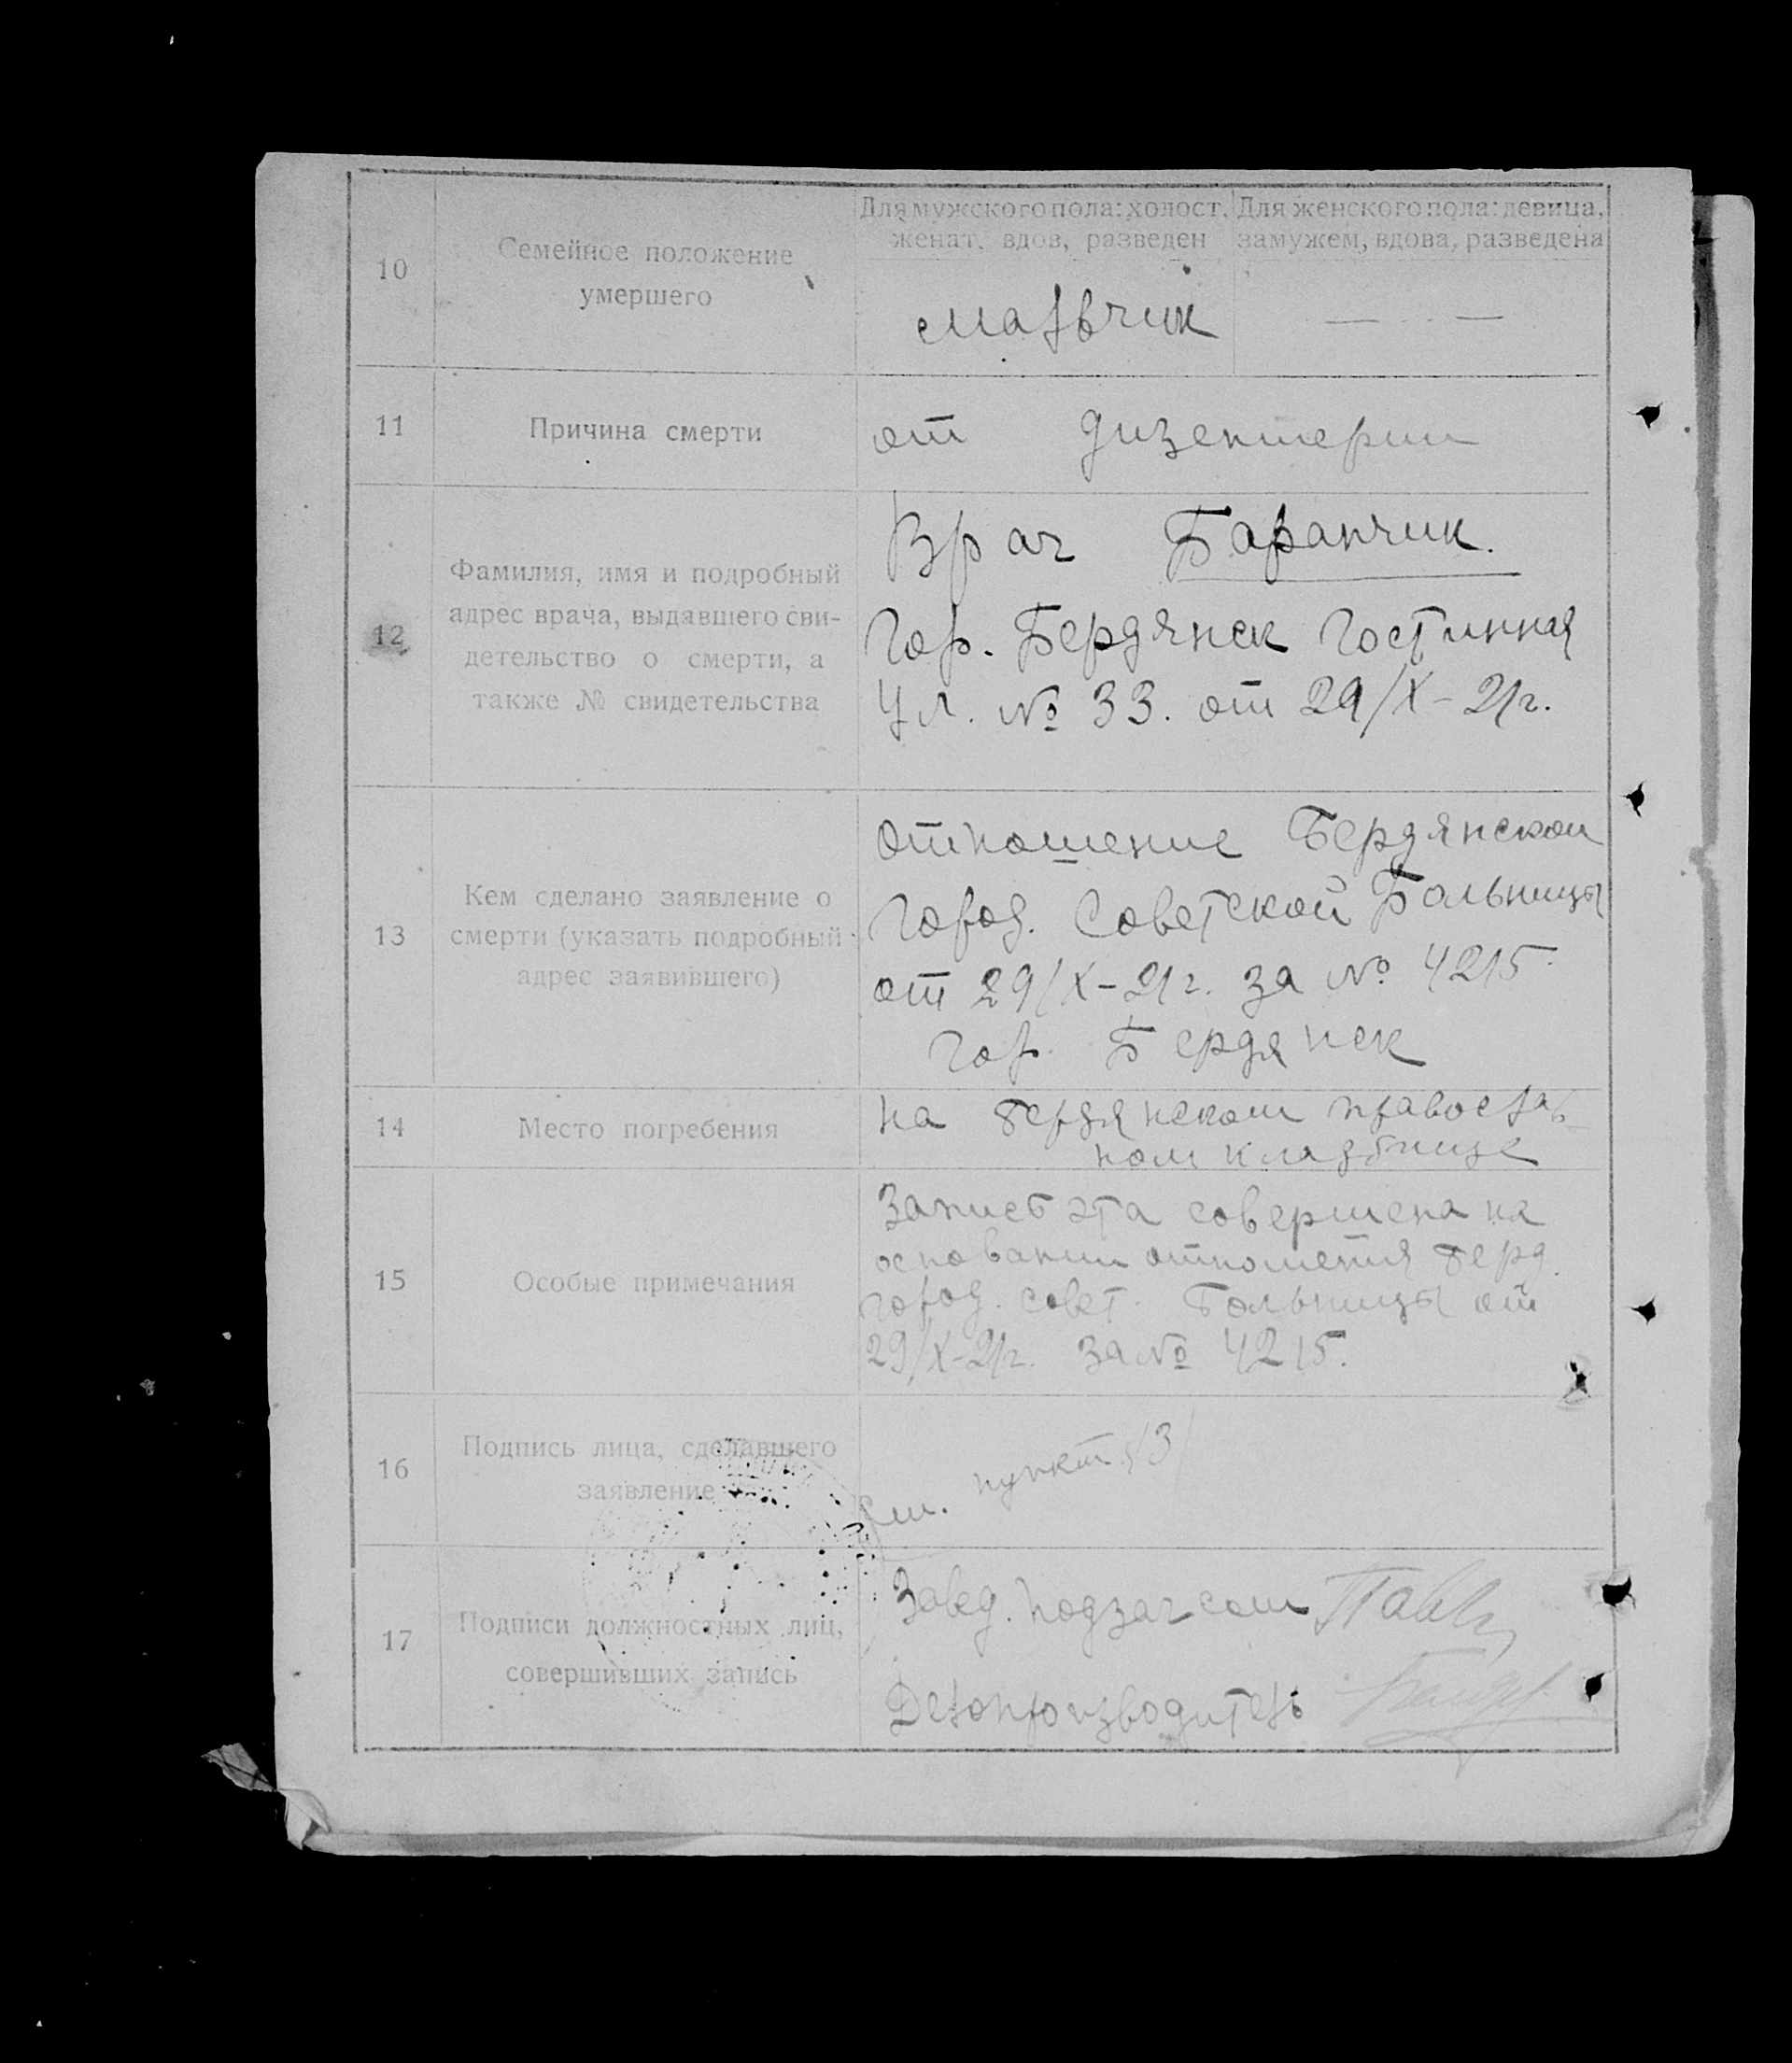 10
Семейное положение
умершего
Для мужского пола: холост,
женат, вдов, разведен
Для женского пола: девица,
замужем, вдова, разведена
мальчик
— —
11
Причина смерти
от дизентерии
12
Фамилия, имя и подробный
адрес врача, выдавшего сви-
детельство о смерти, а
также № свидетельства
Врач Баранчик.
Гор. Бердянск Гостинная
Ул. № 33. от 29/X-21г.
13
Кем сделано заявление о
смерти (указать подробный
адрес заявившего)
Отношение Бердянской
Город. Советской Больницы
от 29/X-21г. за № 4215.
Гор. Бердянск
14
Место погребения
на бердянском православ
ном кладбище
15
Особые примечания
Запись эта совершена на
основании отношения берд.
город. совет. Больницы от
29/X-21г. за № 4215.
16
Подпись лица, сделавшего
заявление
См. пункт 13
17
Подписи должностных лиц,
совершивших запись
Завед. подзагсом
Делопроизводитель